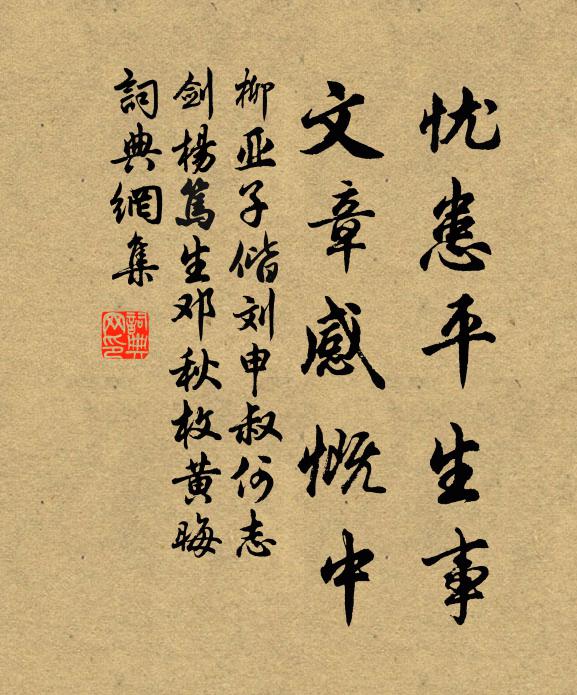 忧患平生事
文章感慨中
柳亚子偕刘申叔何志
剑杨笃生邓秋枚黄晦
詞典網集
詞典网印